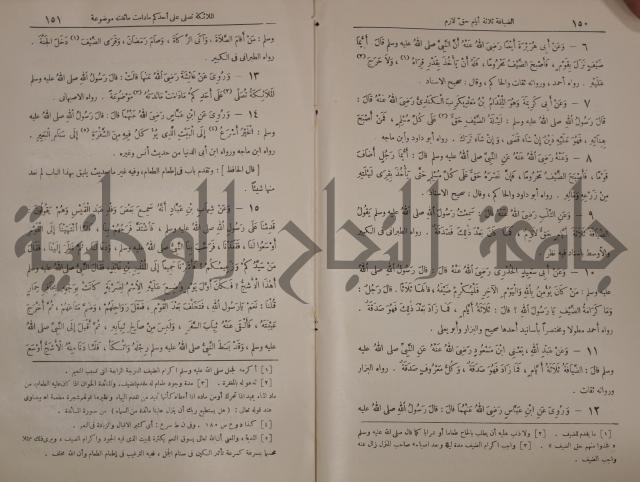 ١٥٠ الضيافة ثلاثة أيام حق لازم
٦ — وَعَنْ أَبِي هُرَيْرَةَ أَيْضًا رَضِيَ اللهُ عَنْهُ أَنَّ النَّبِيَّ صلى اللهُ عليه وسلم قَالَ: أَيُّمَا
ضَيْفٍ نَزَلَ بِقَوْمٍ، فَأَصْبَحَ الضَّيْفُ مَحْرُومًا، فَلَهُ أَنْ يَأْخُذَ بِقَدْرِ قِرَاهُ (١)، وَلَا حَرَجَ (٢)
عَلَيْهِ. رواه أحمد، ورواته ثقات والحاكم، وقال: صحيح الإسناد.
٧ — وَعَنْ أَبِي كَرِيمَةَ وَهُوَ الْمِقْدَامُ بْنُ مَعْدِيكَرِبَ الْكِنْدِيُّ رَضِيَ اللهُ عَنْهُ قَالَ:
قَالَ رَسُولُ اللهِ صلى اللهُ عليه وسلم: لَيْلَةُ الضَّيْفِ حَقٌّ (٣) عَلَى كُلِّ مُسْلِمٍ، فَمَنْ أَصْبَحَ
بِفِنَائِهِ، فَهُوَ عَلَيْهِ دَيْنٌ إِنْ شَاءَ قَضَى، وَإِنْ شَاءَ تَرَكَ. رواه أبو داود وابن ماجه
٨ — وَعَنْهُ رَضِيَ اللهُ عَنْهُ عَنِ النَّبِيِّ صلى اللهُ عليه وسلم قَالَ: أَيُّمَا رَجُلٍ أَضَافَ
قَوْمًا، فَأَصْبَحَ الضَّيْفُ مَحْرُومًا، فَإِنَّ نَصْرَهُ حَقٌّ عَلَى كُلِّ مُسْلِمٍ حَتَّى يَأْخُذَ بِقِرَى لَيْلَتِهِ
مِنْ زَرْعِهِ وَمَالِهِ. رواه أبو داود والحاكم، وقال: صحيح الإسناد.
٩ — وَعَنِ التَّلِبِ رَضِيَ اللهُ عَنْهُ قَالَ: سَمِعْتُ رَسُولَ اللهِ صلى اللهُ عليه وسلم يَقُولُ
الضِّيَافَةُ ثَلَاثَةُ أَيَّامٍ حَقٌّ لَازِمٌ، فَمَا كَانَ بَعْدَ ذٰلِكَ فَصَدَقَةٌ. رواه الطبرانى فى الكبير
والأوسط بإسناد فيه نظر.
١٠ — وَعَنْ أَبِي سَعِيدٍ الْخُدْرِيِّ رَضِيَ اللهُ عَنْهُ قَالَ: قَالَ رَسُولُ اللهِ صلى اللهُ عليه
وسلم: مَنْ كَانَ يُؤْمِنُ بِاللهِ وَالْيَوْمِ الْآخِرِ فَلْيُكْرِمْ ضَيْفَهُ، قَالَهَا ثَلَاثًا. قَالَ رَجُلٌ:
وَمَا كَرَامَةُ الضَّيْفِ يَا رَسُولَ اللهِ؟ قَالَ: ثَلَاثَةُ أَيَّامٍ، فَمَا زَادَ بَعْدَ ذٰلِكَ فَهُوَ صَدَقَةٌ.
رواه أحمد مطولا ومختصراً بأسانيد أحدها صحيح والبزار وأبو يعلى.
١١ — وَعَنْ عَبْدِ اللهِ، يَعْنِي ابْنَ مَسْعُودٍ رَضِيَ اللهُ عَنْهُ عَنِ النَّبِيِّ صلى اللهُ عليه
وسلم قَالَ: الضِّيَافَةُ ثَلَاثَةُ أَيَّامٍ، فَمَا زَادَ فَهُوَ صَدَقَةٌ، وَكُلُّ مَعْرُوفٍ صَدَقَةٌ. رواه البزار
ورواته ثقات.
١٢ — وَرُوِيَ عَنِ ابْنِ عَبَّاسٍ رَضِيَ اللهُ عَنْهُمَا قَالَ: قَالَ رَسُولُ اللهِ صلى اللهُ عليه
[١] ما يقدم للضيف. [٢] ولا ذنب عليه أن يطلب
واجب الضيف.
الملائكة تصلى على أحدكم مادامت مائدته موضوعة ١٥١
وسلم: مَنْ أَقَامَ الصَّلَاةَ، وَآتَى الزَّكَاةَ، وَصَامَ رَمَضَانَ، وَقَرَى الضَّيْفَ (١) دَخَلَ الْجَنَّةَ.
رواه الطبرانى فى الكبير.
١٣ — وَرُوِيَ عَنْ عَائِشَةَ رَضِيَ اللهُ عَنْهَا قَالَتْ: قَالَ رَسُولُ اللهِ صلى اللهُ عليه وسلم
الْمَلَائِكَةُ تُصَلِّي (٢) عَلَى أَحَدِكُمْ مَادَامَتْ مَائِدَتُهُ (٣) مَوْضُوعَةً. رواه الأصبهانى.
١٤ — وَرُوِيَ عَنِ ابْنِ عَبَّاسٍ رَضِيَ اللهُ عَنْهُمَا قَالَ: قَالَ رَسُولُ اللهِ صلى اللهُ عليه
وسلم: الْخَيْرُ أَسْرَعُ (٤) إِلَى الْبَيْتِ الَّذِي يُؤْكَلُ فِيهِ مِنَ الشَّفْرَةِ (٥) إِلَى سَنَامِ الْبَعِيرِ.
رواه ابن ماجه ورواه ابن أبى الدنيا من حديث أنس وغيره.
[قال الحافظ]: وتقدم باب فى إطعام الطعام، وفيه غير ما حديث يليق بهذا الباب لم نعد
منها شيئاً.
١٥ — وَعَنْ شِهَابِ بْنِ عَبَّادٍ أَنَّهُ سَمِعَ بَعْضَ وَفْدِ عَبْدِ الْقَيْسِ وَهُمْ يَقُولُونَ:
قَدِمْنَا عَلَى رَسُولِ اللهِ صلى اللهُ عليه وسلم، فَاشْتَدَّ فَرَحُهُمْ بِنَا، فَلَمَّا انْتَهَيْنَا إِلَى الْقَوْمِ
أَوْسَعُوا لَنَا، فَقَعَدْنَا، فَرَحَّبَ بِنَا النَّبِيُّ صلى اللهُ عليه وسلم، وَدَعَا لَنَا، ثُمَّ نَظَرَ إِلَيْنَا، فَقَالَ:
مَنْ سَيِّدُكُمْ وَزَعِيمُكُمْ؟ فَأَشَرْنَا جَمِيعًا إِلَى الْمُنْذِرِ بْنِ عَائِذٍ، فَقَالَ النَّبِيُّ صلى اللهُ عليه وسلم
أَهٰذَا الْأَشَجُّ؟
قُلْنَا: نَعَمْ يَا رَسُولَ اللهِ، فَتَخَلَّفَ بَعْدَ الْقَوْمِ، فَعَقَلَ رَوَاحِلَهُمْ، وَضَمَّ مَتَاعَهُمْ، ثُمَّ أَخْرَجَ
عَيْبَتَهُ، فَأَلْقَى عَنْهُ ثِيَابَ السَّفَرِ، وَلَبِسَ مِنْ صَالِحِ ثِيَابِهِ، ثُمَّ أَقْبَلَ إِلَى النَّبِيِّ صلى اللهُ
عليه وسلم، وَقَدْ بَسَطَ النَّبِيُّ صلى اللهُ عليه وسلم رِجْلَهُ وَاتَّكَأَ، فَلَمَّا دَنَا مِنْهُ الْأَشَجُّ أَوْسَعَ
جامعة النجاح الوطنية